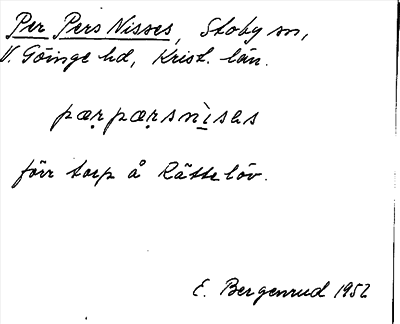 Per Pers Nisses, Stoby sn,
V. Göinge hd, Krist. län.
pæṛpæṛsnìsəs
förr torp å Rättelöv.
E. Bergenrud 1952